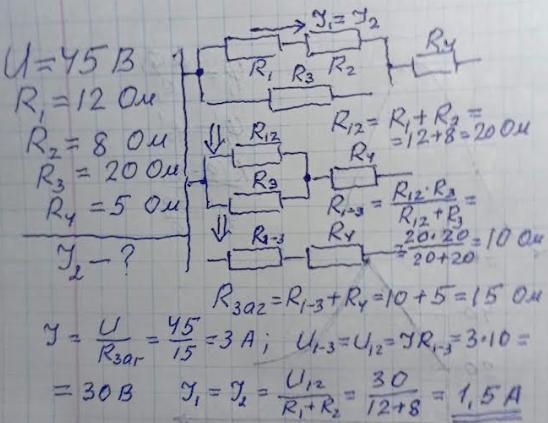 U = 45 В
R₁ = 12 Ом
R₂ = 8 Ом
R₃ = 20 Ом
R₄ = 5 Ом
I₂ – ?
I₁ = I₂
R₁ R₂ R₄
R₃
R₁₂ = R₁ + R₂ =
= 12 + 8 = 20 Ом
R₁₂ R₄
R₃
R₁₋₃ = R₁₂·R₃ / R₁₂ + R₃ =
= 20·20 / 20+20 = 10 Ом
R₁₋₃ R₄
Rзаг = R₁₋₃ + R₄ = 10 + 5 = 15 Ом
I = U / Rзаг = 45 / 15 = 3 А; U₁₋₃ = U₁₂ = IR₁₋₃ = 3·10 =
= 30 В I₁ = I₂ = U₁₂ / R₁ + R₂ = 30 / 12+8 = 1,5 А